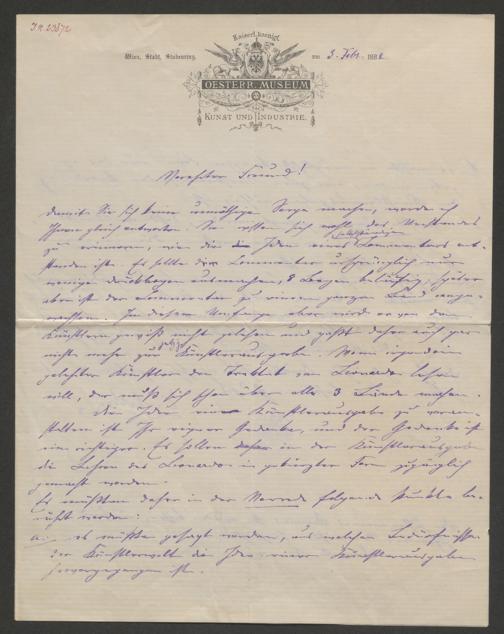 J.N. 23872
Kaiserl. koenigl.
Wien, Stadt, Stubenring, am 3. Febr. 1882
OESTERR. MUSEUM
KUNST UND INDUSTRIE.
Verehrter Freund!
Damit Sie sich keine unnöthige Sorge machen, werde ich
Ihnen gleich antworten. Sie wissen sich wohl des Umstandes
zu erinnern, wie die Idee eines selbständigen Commentars ent-
standen ist. Es sollte der Commentar ursprünglich nur
wenige Druckbogen ausmachen, 8 Bogen beiläufig; später
aber ist der Commentar zu einem ganzen Band ange-
wachsen. In diesem Umfange aber wird er von den
Künstlern gewiß nicht gelesen und paßt daher auch gar
nicht mehr zur Künstlerausgabe. Wenn irgend ein
gelehrter Künstler den Traktat von Leonardo lesen
will, der muß sich schon über alle 3 Bände machen.
Die Idee eine Künstlerausgabe zu veran-
stalten ist Ihr eigener Gedanke, und der Gedanke ist
ein richtiger. Es sollen in der Künstlerausgabe
die Lehren des Leonardo in gekürzter Form zugänglich
gemacht werden.
Es müßten daher in der Vorrede folgende Punkte be-
rührt werden:
a. es müßte gesagt werden, aus welchen Bedürfnissen
der Künstlerwelt die Idee einer Künstlerausgabe
hervorgegangen ist.